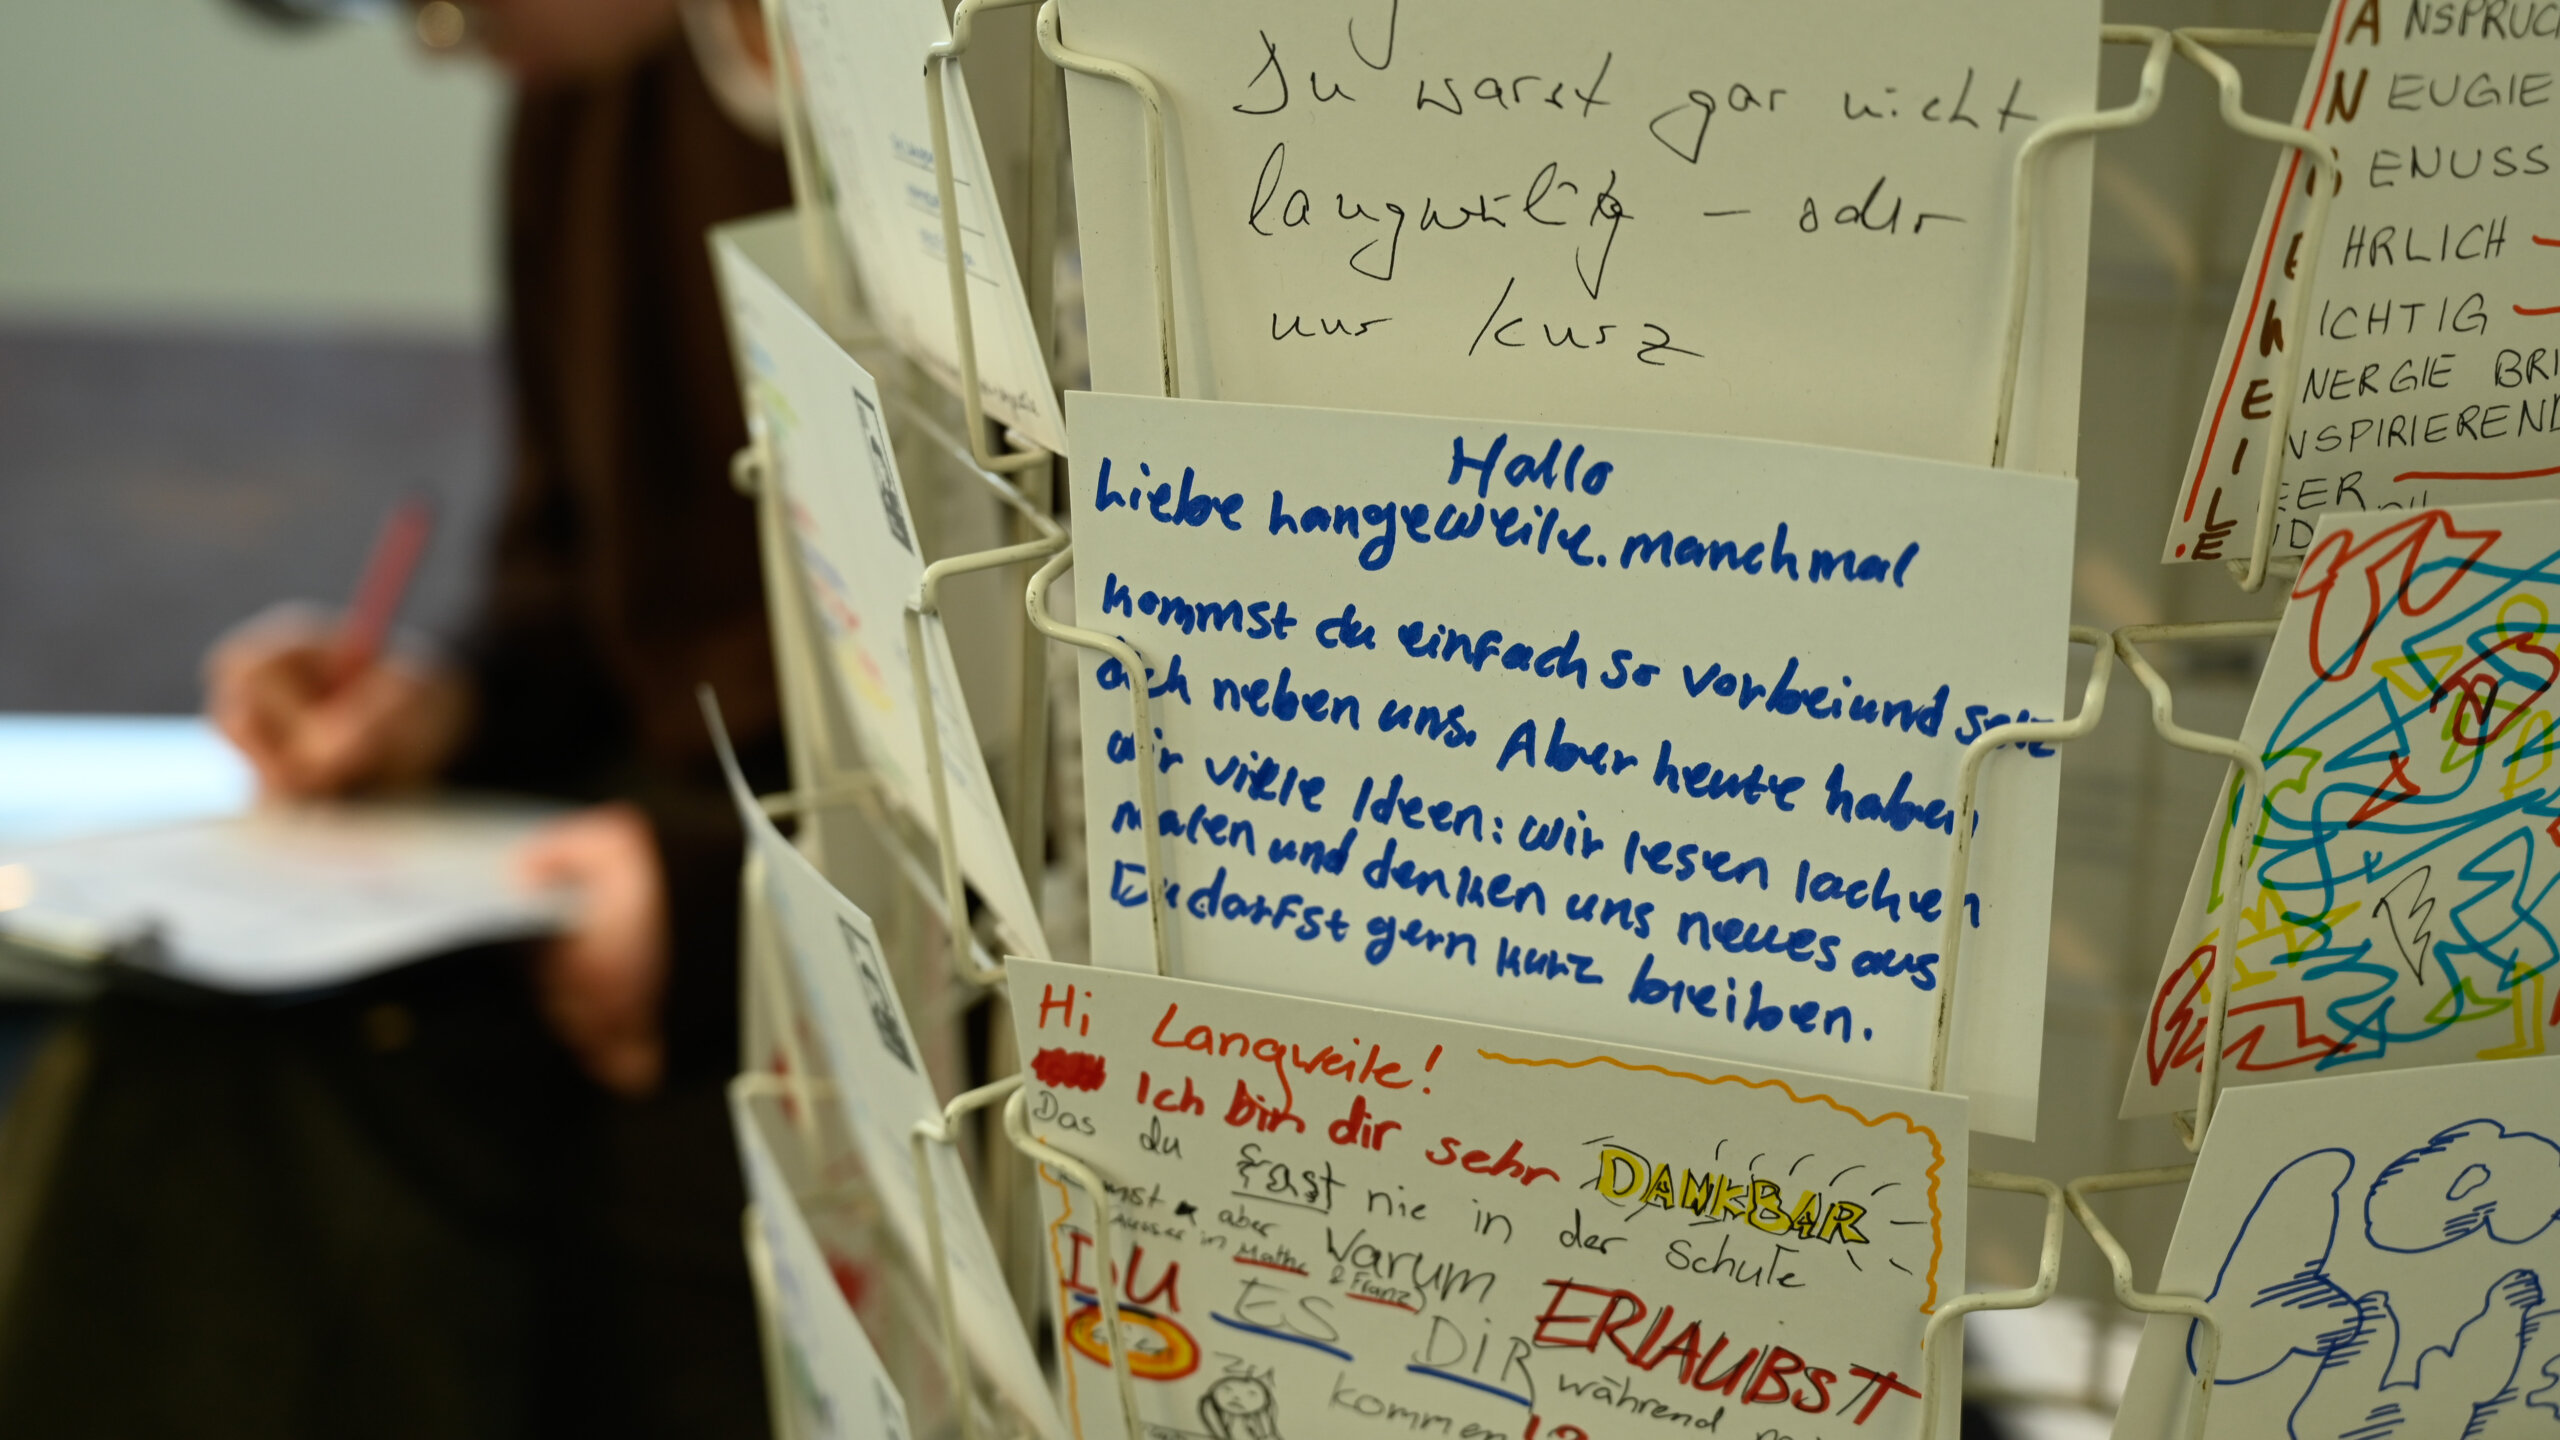 Du warst gar nicht
langweilig – oder
nur kurz
Hallo
Liebe Langeweile. manchmal
kommst du einfach so vorbei und setz
dich neben uns. Aber heute haben
wir viele Ideen: wir lesen lachen
malen und denken uns neues aus
Du darfst gern kurz bleiben.
Hi Langweile!
Ich bin dir sehr DANKBAR
Das du fast nie in der Schule
kommst aber Warum
(Ausser in Mathe & Franz)
DU ES DIR ERLAUBST
zu kommen während
ANSPRUC
NEUGIE
GENUSS
EHRLICH
ICHTIG
ENERGIE BRI
INSPIRIEREND
LEER